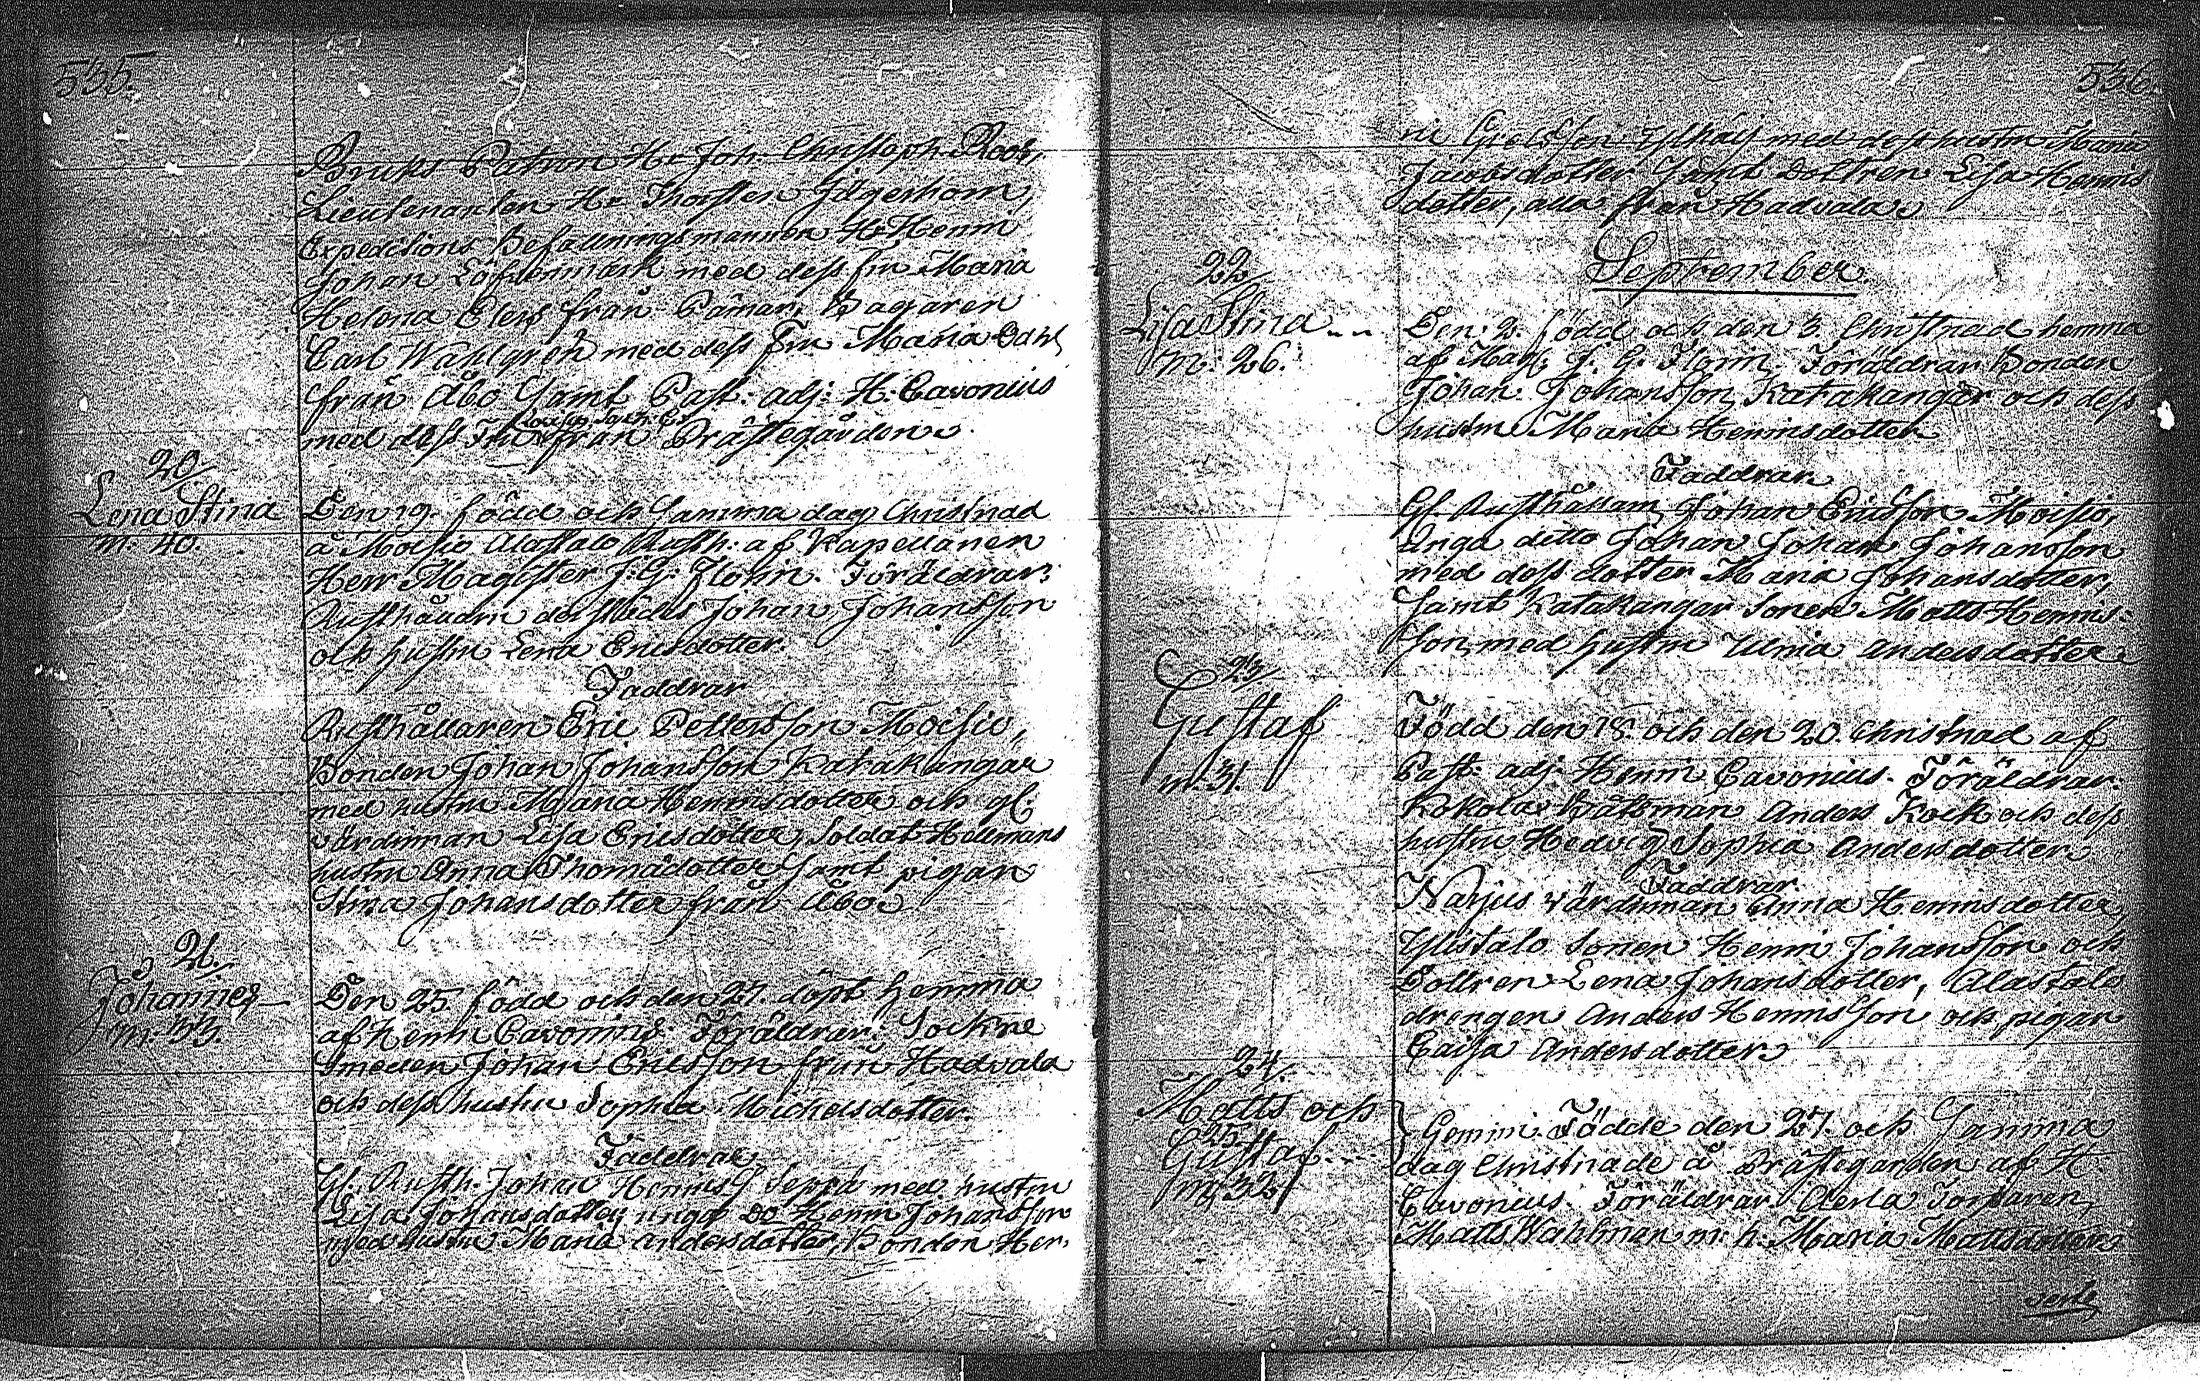 535.
Bruks Patron H: Joh: Christoph Roos,
Lieutenanten H: Thorsten Jägerhorn,
Expeditions Befallningsmannen H: Henric
Johan Löfvenmark med dess fru Maria
Helena Elers från Pämar, Bagaren
Carl Wahlgren med dess Fru Maria Dahl
från Åbo Samt Past: adj: H: Cavonius
med dess Fru från Prästegården.
20
Lena Stina
m: 40.
Den 19. född och Samma dag Christnad
å Moisio Alastalo Rusth: af Kapellanen
Herr Magister J: G: Florin. Föräldrar:
Rusthållarn derstädes Johan Johansson
och hustru Lena Ericsdotter.
Faddrar
Rusthållaren Eric Pettersson Moisio,
Bonden Johan Johansson Katakangar
med hustru Maria Henricsdotter och gl:
värdinnan Lisa Ericsdotter, Soldat Hellmans
hustru Anna Thomädotter Samt pigan
Stina Johansdotter från Åbo.
21.
Johannes
m: 33.
Den 25. född och den 27. döpt hemma
af Henric Cavonius. Föräldrar: Sockne
Smeden Johan Ericsson från Hadvala
och dess hustru Sophia Michelsdotter.
Faddrar
Gl. Rusth. Johan Henrics Seppä med hustru
Lisa Johansdotter, unga do Henric Johansson
med hustru Maria Andersdotter, Bonden Hen-
536.
ric med dess hustru Maria
Jacobsdotter Samt Dottren Lisa Henrics
dotter, alla från Hadvala.
September
22
Lisa Stina
m: 26.
Den 2. född och den 3. Christnad hemma
af Mag. J. G. Florin. Föräldrar Bonden
Johan Johansson Katakangar och dess
hustru Maria Henricsdotter
Faddrar
Gl. Rusthållarn Johan Ericsson Moisio,
Unga ditto Johan Johan Johansson
med dess dotter Maria Johansdotter,
Samt Katakangar Sonen Matts Henrics-
son med hustru Ulrica Andersdotter.
23
Gustaf
m. 31.
Född den 18. och den 20. Christnad af
Past: adj: Henric Cavonius. Föräldrar:
Kokola Båtsman Anders Kock och dess
hustru Hedvig Sophia Andersdotter
Faddrar
Narjus värdinnan Anna Henricsdotter,
Ylistalo Sonen Henric Johansson och
Dottren Lena Johansdotter, Alastalo
drengen Anders Henricsson och pigan
Caisa Andersdotter
24.
Matts och
25
Gustaf
m. 32
Gemini. Födde den 27. och Samma
dag Christnade å Prästegården af H
Cavonius. Föräldrar Aerla Torparen
Matts Wahlman m: h. Maria Mattsdotter